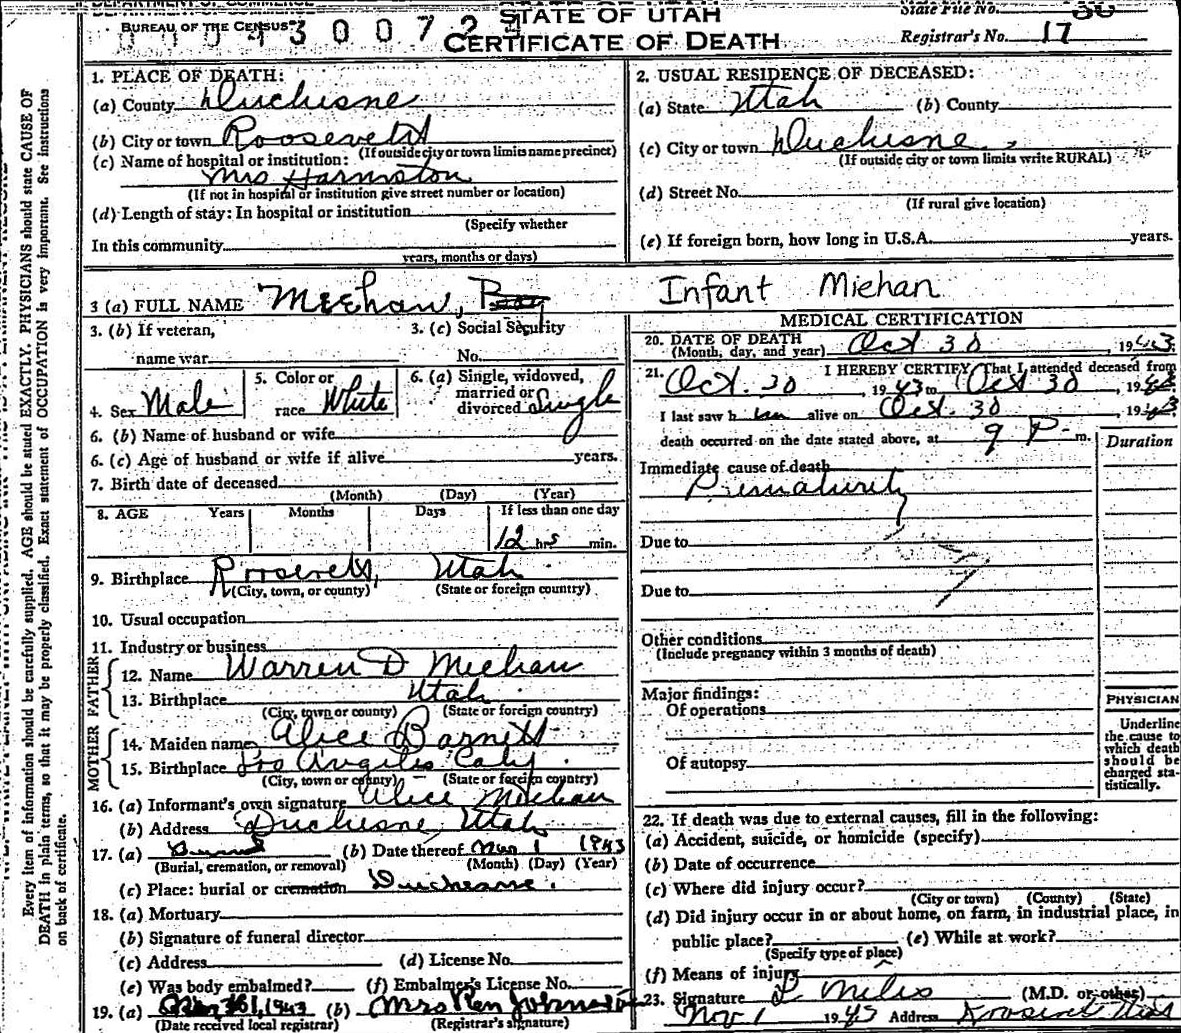 BUREAU OF THE CENSUS
STATE OF UTAH
CERTIFICATE OF DEATH
State File No.
Registrar's No. 17
1. PLACE OF DEATH:
(a) County Duchesne
(b) City or town Roosevelt
(If outside city or town limits name precinct)
(c) Name of hospital or institution:
Mrs Harmston
(If not in hospital or institution give street number or location)
(d) Length of stay: In hospital or institution
(Specify whether
In this community
years, months or days)
2. USUAL RESIDENCE OF DECEASED:
(a) State Utah (b) County
(c) City or town Duchesne
(If outside city or town limits write RURAL)
(d) Street No.
(If rural give location)
(e) If foreign born, how long in U.S.A. years.
3 (a) FULL NAME Meehan, Boy Infant Miehan
3. (b) If veteran, name war
3. (c) Social Security No.
4. Sex Male
5. Color or race White
6. (a) Single, widowed, married or divorced Single
6. (b) Name of husband or wife
6. (c) Age of husband or wife if alive years.
7. Birth date of deceased
(Month) (Day) (Year)
8. AGE Years Months Days If less than one day
12 hrs min.
9. Birthplace Roosevelt, Utah
(City, town, or county) (State or foreign country)
10. Usual occupation
11. Industry or business
FATHER
12. Name Warren D Meehan
13. Birthplace Utah
(City, town or county) (State or foreign country)
MOTHER
14. Maiden name Alice Barnett
15. Birthplace Los Angeles Calif
(City, town or county) (State or foreign country)
16. (a) Informant's own signature Alice Meehan
(b) Address Duchesne, Utah
17. (a) Burial (b) Date thereof Nov 1 1943
(Burial, cremation, or removal) (Month) (Day) (Year)
(c) Place: burial or cremation Duchesne.
18. (a) Mortuary
(b) Signature of funeral director
(c) Address (d) License No.
(e) Was body embalmed? (f) Embalmer's License No.
19. (a) 1943 (b) Mrs Ken Johnston
(Date received local registrar) (Registrar's signature)
MEDICAL CERTIFICATION
20. DATE OF DEATH
(Month, day, and year) Oct 30, 1943
21. I HEREBY CERTIFY, That I attended deceased from
Oct. 30 1943 to Oct 30, 1943
I last saw him alive on Oct. 30, 1943
death occurred on the date stated above, at 9 P. m.
Duration
Immediate cause of death
Prematurity
Due to
Due to
Other conditions
(Include pregnancy within 3 months of death)
Major findings:
Of operations
Of autopsy
PHYSICIAN
Underline
the cause to
which death
should be
charged sta-
tistically.
22. If death was due to external causes, fill in the following:
(a) Accident, suicide, or homicide (specify)
(b) Date of occurrence
(c) Where did injury occur?
(City or town) (County) (State)
(d) Did injury occur in or about home, on farm, in industrial place, in
public place? (e) While at work?
(Specify type of place)
(f) Means of injury
23. Signature Miles (M.D. or other)
Nov 1 1943 Address Roosevelt Utah
Every item of information should be carefully supplied. AGE should be stated EXACTLY. PHYSICIANS should state CAUSE OF
DEATH in plain terms, so that it may be properly classified. Exact statement of OCCUPATION is very important. See instructions
on back of certificate.